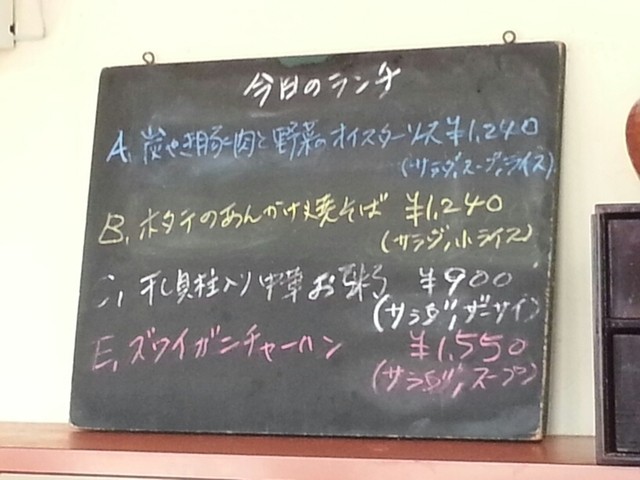 今日のランチ
A. 炭やき豚肉と野菜のオイスターソース ¥1,240
(サラダ,スープ,ライス)
B. ホタテのあんかけ焼そば ¥1,240
(サラダ,小ライス)
C. 干し貝柱入り中華お粥 ¥900
(サラダ,ザーサイ)
E. ズワイガニチャーハン ¥1,550
(サラダ,スープ)